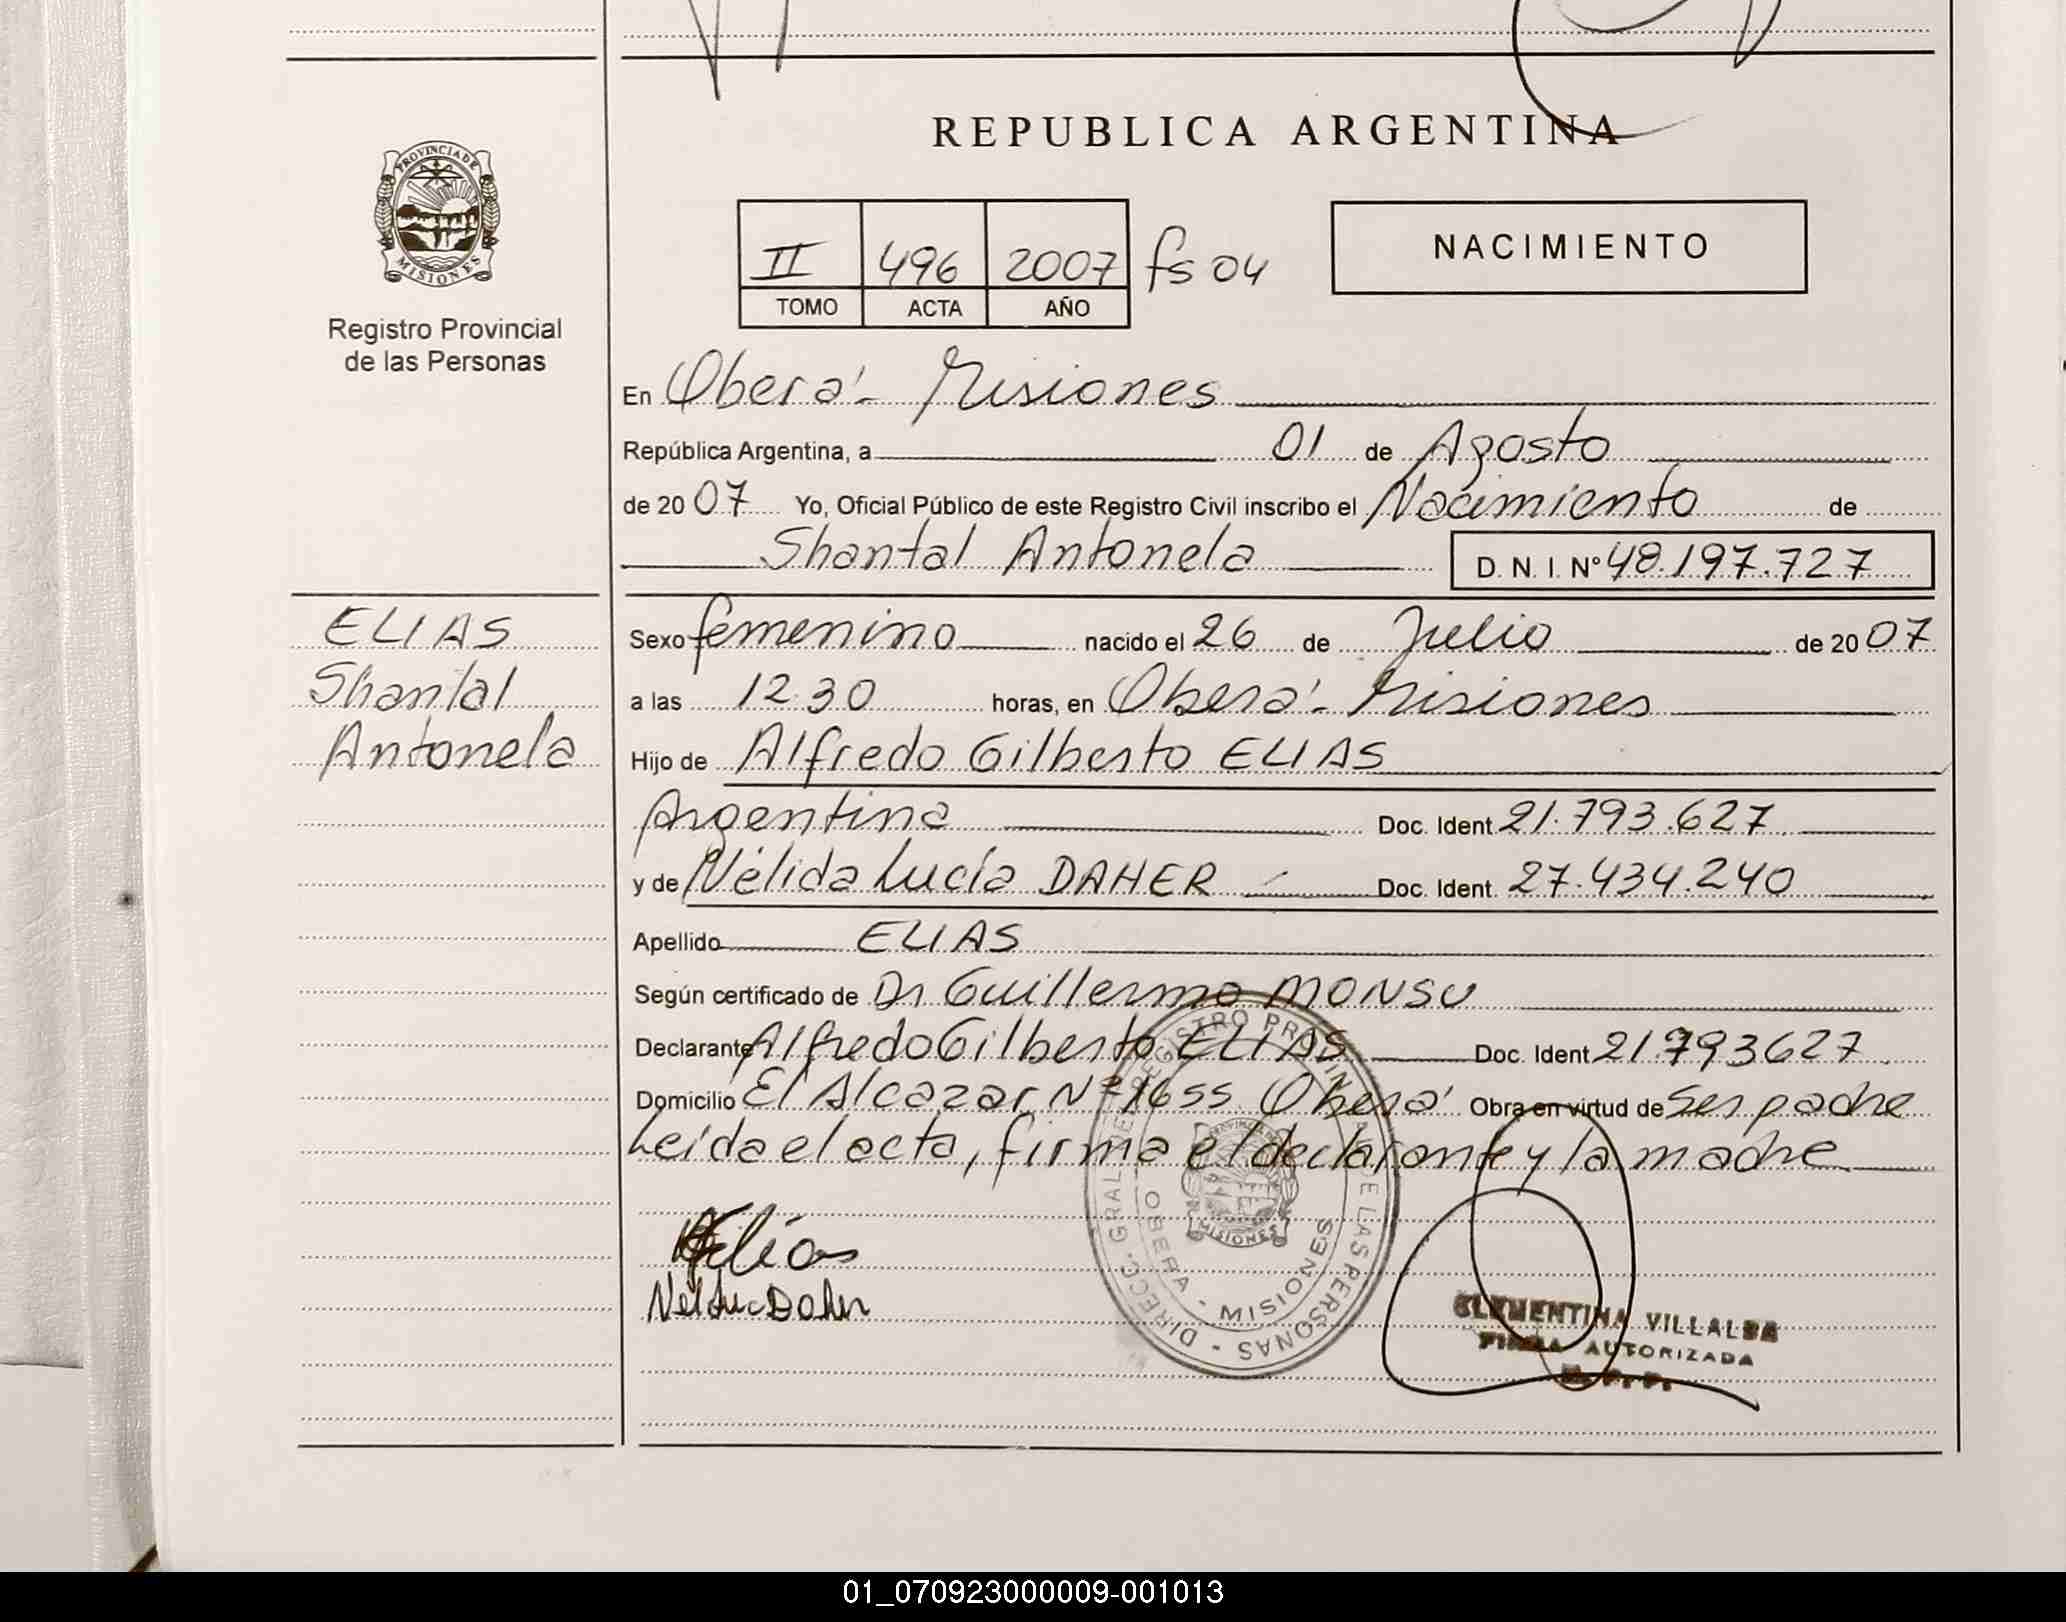 REPUBLICA ARGENTINA
PROVINCIA DE
MISIONES
Registro Provincial
de las Personas
II 496 2007 fs 04
TOMO ACTA AÑO
NACIMIENTO
En Oberá - Misiones
República Argentina, a 01 de Agosto
de 20 07 Yo, Oficial Público de este Registro Civil inscribo el Nacimiento de
Shantal Antonela D. N. I. Nº 48.197.727
ELIAS
Shantal
Antonela
Sexo femenino nacido el 26 de Julio de 20 07
a las 12.30 horas, en Oberá - Misiones
Hijo de Alfredo Gilberto ELIAS
Argentina Doc. Ident. 21.793.627
y de Nélida Lucía DAHER Doc. Ident. 27.434.240
Apellido ELIAS
Según certificado de Dr Guillermo MONSU
Declarante Alfredo Gilberto ELIAS Doc. Ident 21.793627
Domicilio El Alcazar Nº 1655 Oberá Obra en virtud de Ser padre
Leída el acta, firma el declarante y la madre
Elías
Daher
DIRECC. GRAL. DE REGISTRO PROVINCIAL DE LAS PERSONAS
OBERA - MISIONES
MISIONES
CLEMENTINA VILLALBA
FIRMA AUTORIZADA
R. P. P.
01_070923000009-001013